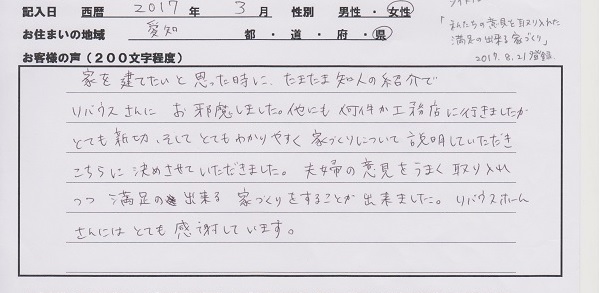 記入日 西暦 2017 年 3 月 性別 男性 ・ 女性
お住まいの地域 愛知 都 ・ 道 ・ 府 ・ 県
「私たちの意見を取り入れた
満足の出来る家づくり」
2017.8.21登録
お客様の声（200文字程度）
家を建てたいと思った時に、たまたま知人の紹介で
リバウスさんに お邪魔しました。他にも何件か工務店に行きましたが
とても親切、そしてとてもわかりやすく 家づくりについて 説明していただき
こちらに決めさせていただきました。夫婦の意見をうまく取り入れ
つつ 満足の 出来る 家づくりをすることが出来ました。リバウスホーム
さんにはとても感謝しています。